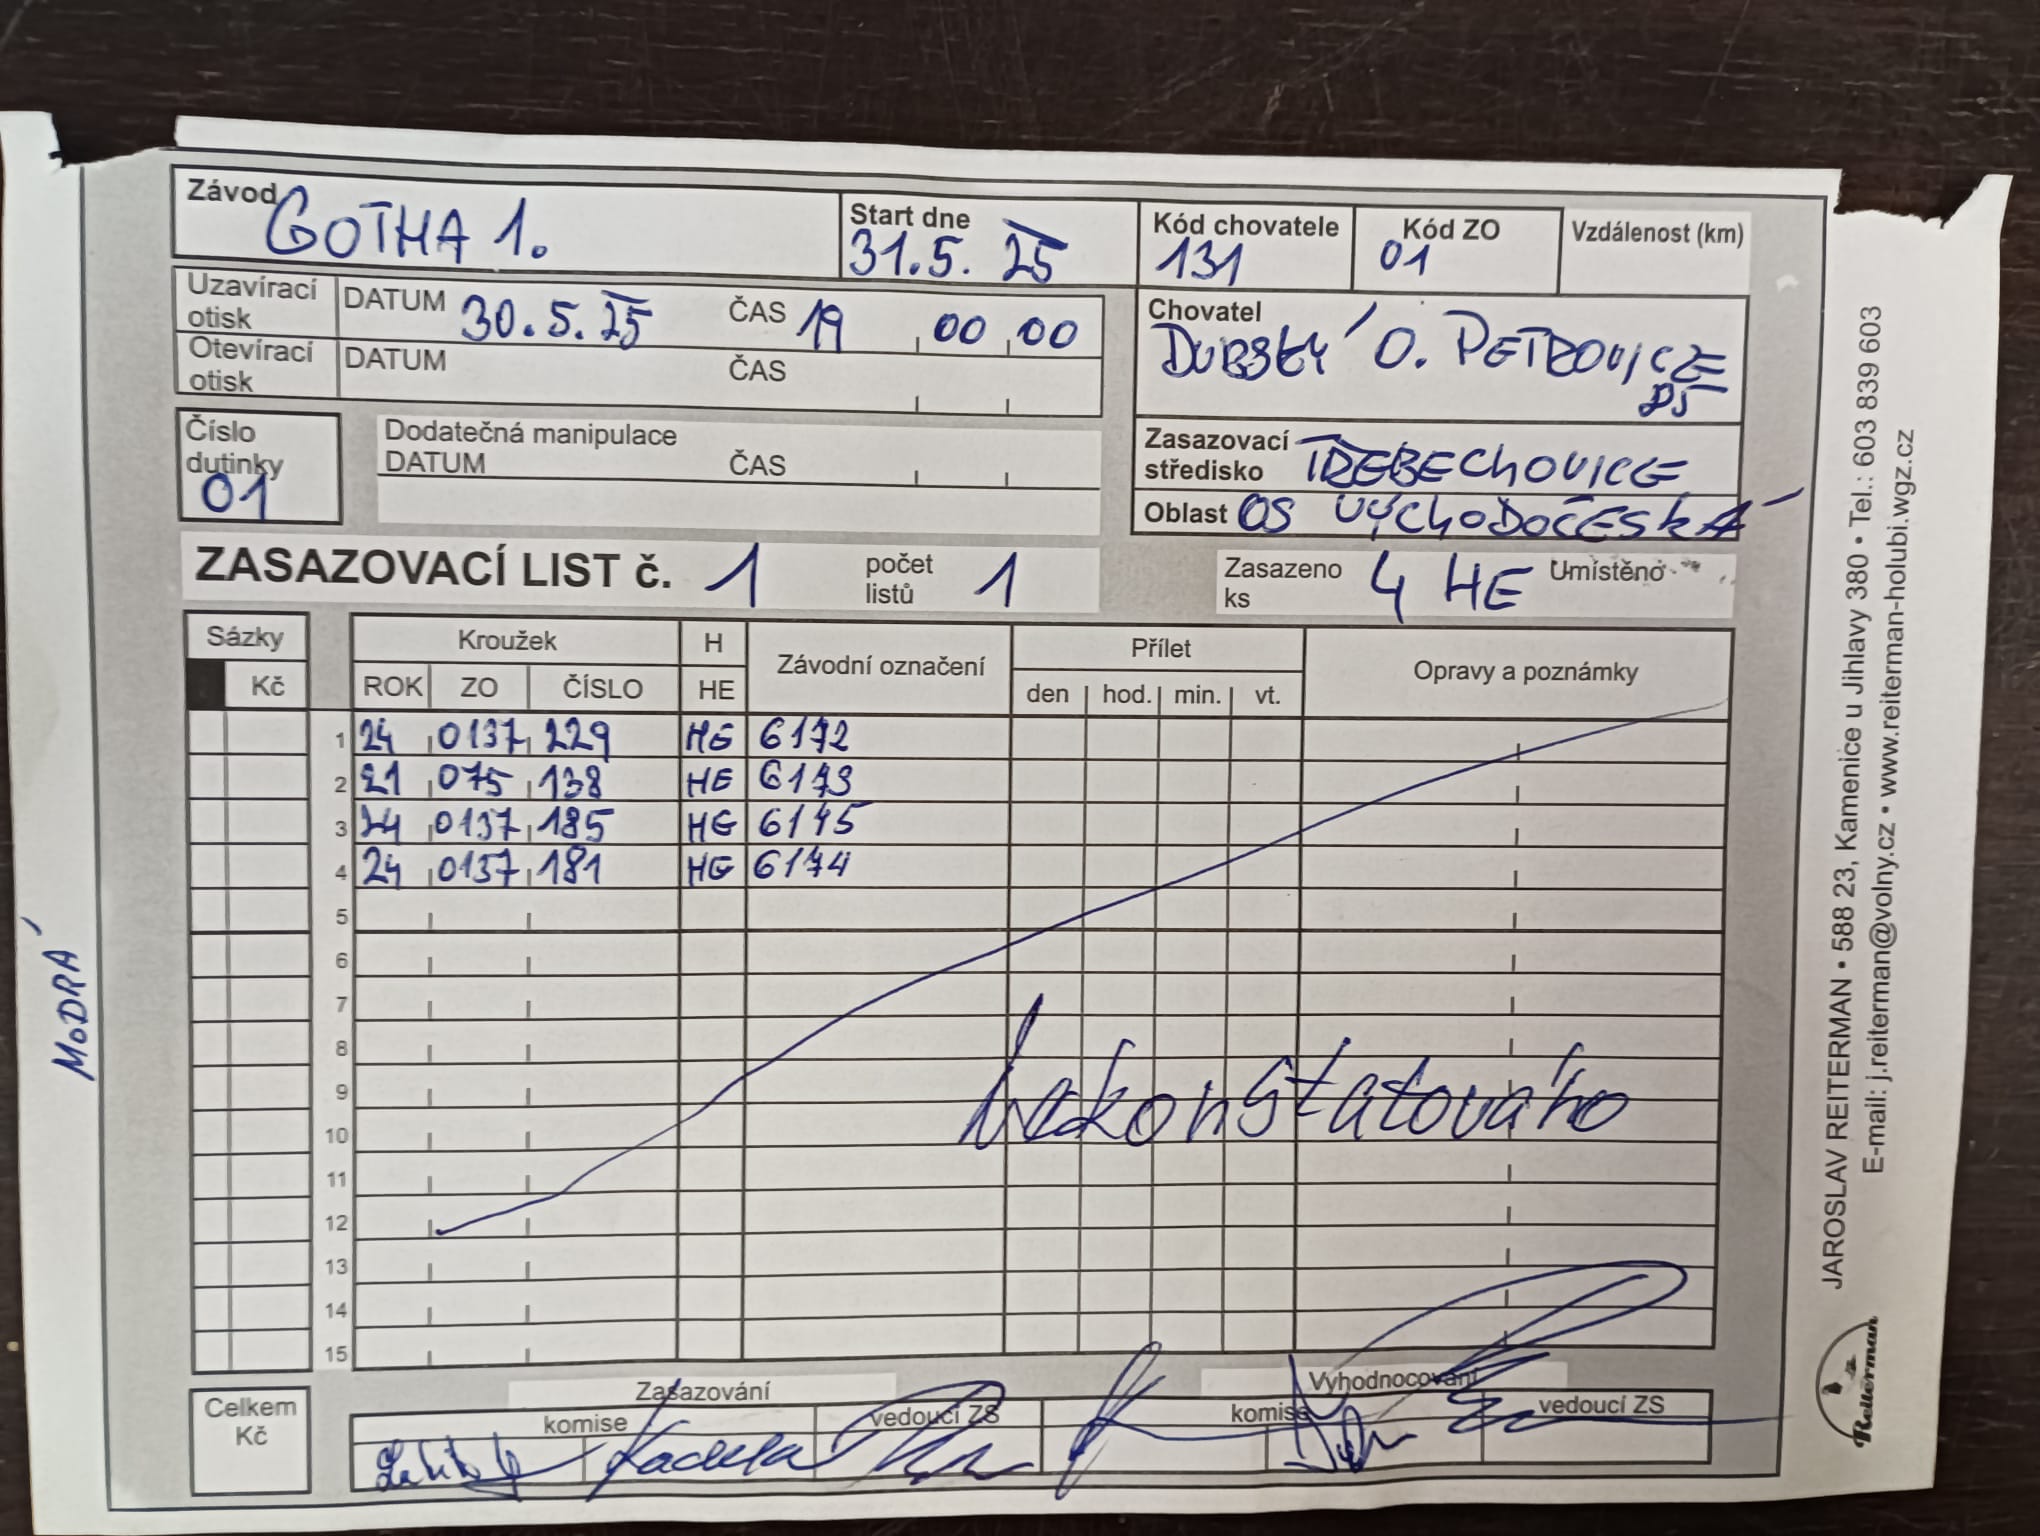 Závod GOTHA 1.
Start dne 31.5. 25
Kód chovatele 131
Kód ZO 01
Vzdálenost (km)
Uzavírací otisk DATUM 30.5.25 ČAS 19 00 00
Otevírací otisk DATUM ČAS
Chovatel
DUBSKÝ O. PETROVICE
Číslo dutinky 01
Dodatečná manipulace
DATUM ČAS
Zasazovací středisko TŘEBECHOVICE
Oblast OS VÝCHODOČESKÁ
ZASAZOVACÍ LIST č. 1 počet listů 1
Zasazeno ks 4 HE Umístěno
Sázky Kroužek H Závodní označení Přílet Opravy a poznámky
Kč ROK ZO ČÍSLO HE den hod. min. vt.
1 24 0137 229 HE 6172
2 21 075 138 HE 6173
3 24 0137 185 HE 6175
4 24 0137 181 HE 6174
5
6
7
8
9
10
11
12
13
14
15
Celkem Kč
Zasazování Vyhodnocování
komise vedoucí ZS komise vedoucí ZS
MODRÁ
JAROSLAV REITERMAN • 588 23, Kamenice u Jihlavy 380 • Tel.: 603 839 603
E-mail: j.reiterman@volny.cz • www.reiterman-holubi.wgz.cz
Reiterman